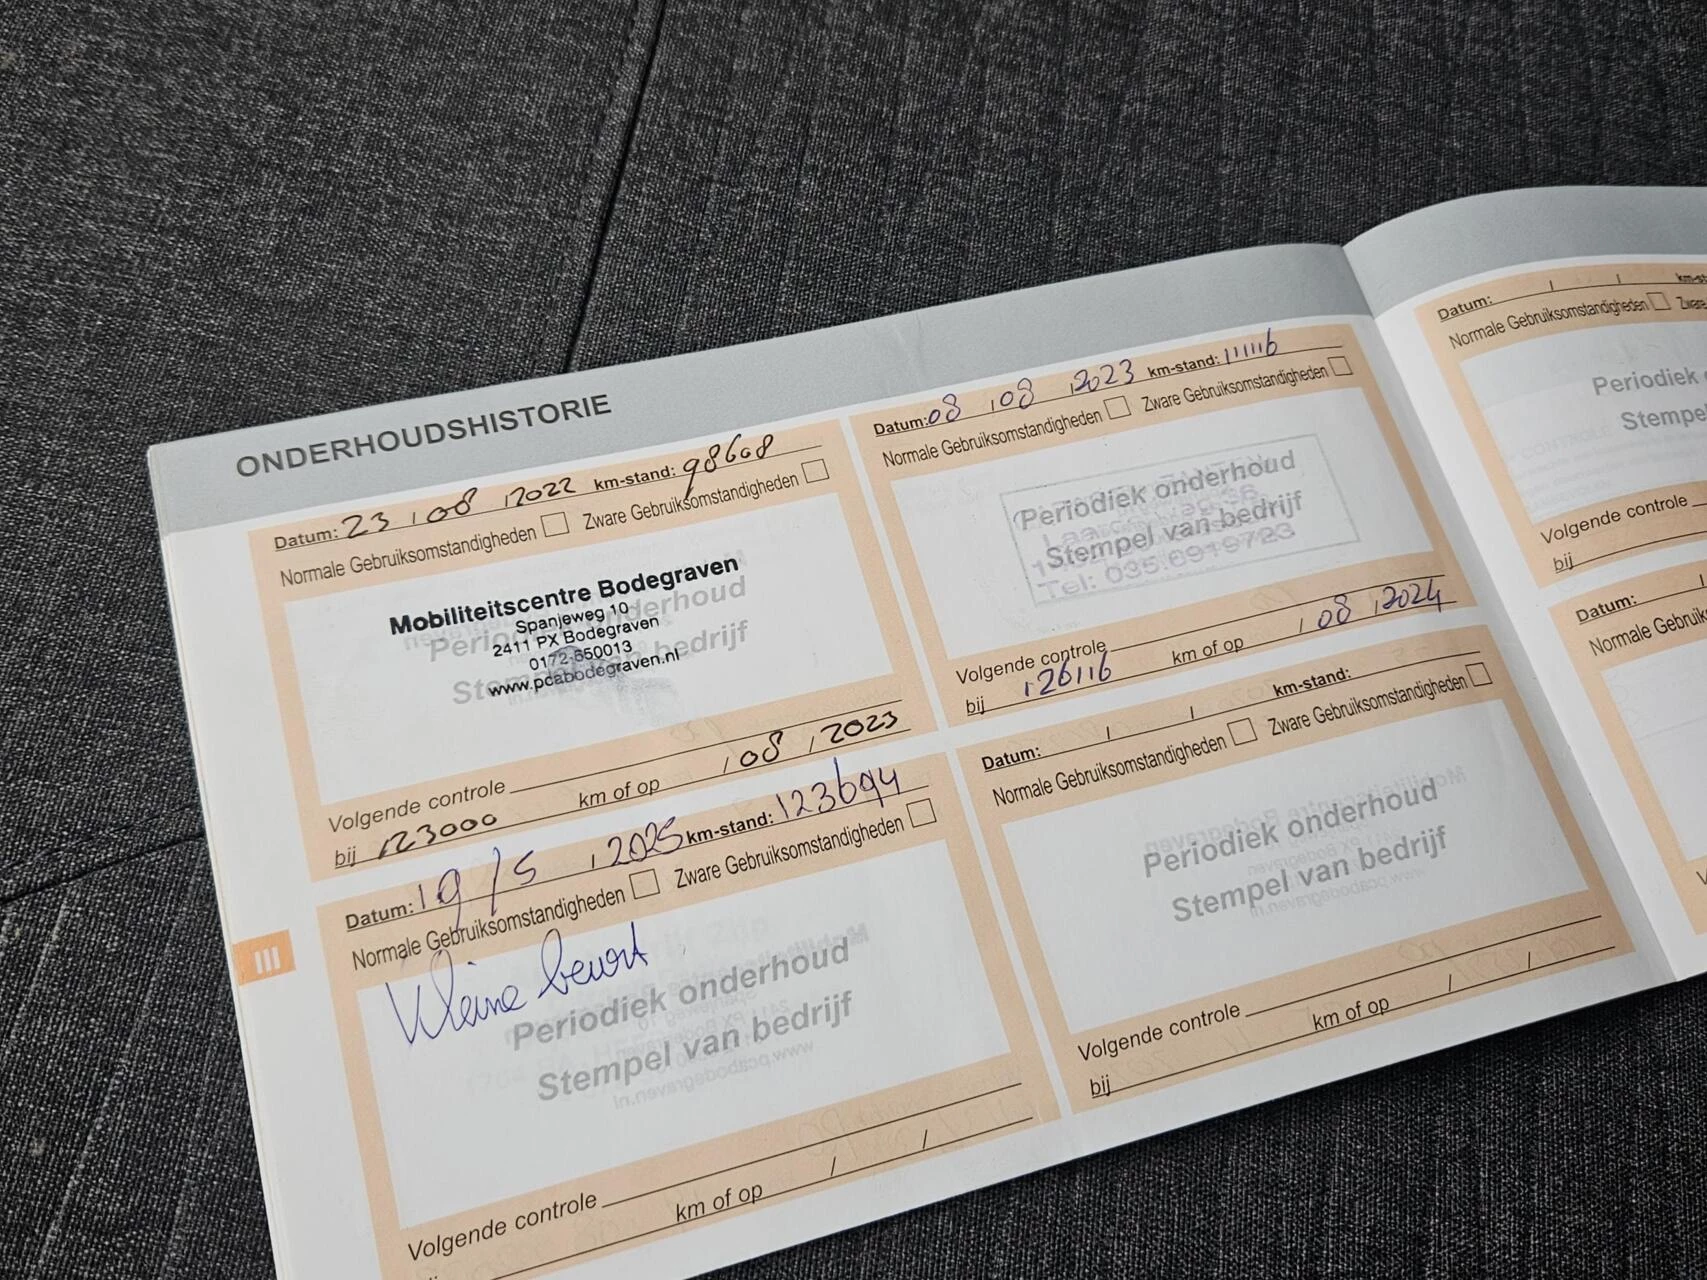 ONDERHOUDSHISTORIE
Datum: 23 / 08 / 2022 km-stand: 98608
Normale Gebruiksomstandigheden Zware Gebruiksomstandigheden
Mobiliteitscentre Bodegraven
Spanjeweg 10
2411 PX Bodegraven
0172-650013
www.pcabodegraven.nl
Periodiek onderhoud
Stempel van bedrijf
Volgende controle
bij 123000 km of op / 08 / 2023
Datum: 08 / 08 / 2023 km-stand: 111116
Normale Gebruiksomstandigheden Zware Gebruiksomstandigheden
Periodiek onderhoud
Stempel van bedrijf
Tel: 035.6919723
Volgende controle
bij 126116 km of op / 08 / 2024
Datum: 19 / 5 / 2025 km-stand: 123694
Normale Gebruiksomstandigheden Zware Gebruiksomstandigheden
Kleine beurt
Periodiek onderhoud
Stempel van bedrijf
Volgende controle
km of op / /
Datum: / / km-stand:
Normale Gebruiksomstandigheden Zware Gebruiksomstandigheden
Periodiek onderhoud
Stempel van bedrijf
Volgende controle
bij km of op / /
III
Datum: / / km-st
Normale Gebruiksomstandigheden Zware
Periodiek
Stempel
Volgende controle
bij
Datum:
Normale Gebruiks